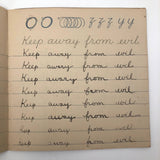 Keep away from evil
Keep away from evil
Keep away from evil
Keep away from evil
Keep away from evil
Keep away from evil
Keep away from evil
Keep away from evil
eep away from evil
eep away from evil